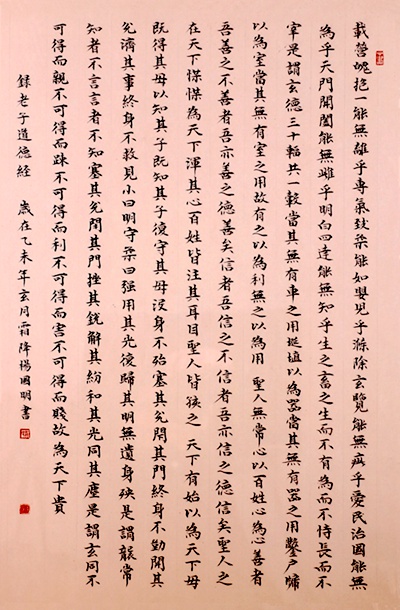 載營魄抱一能無離乎專氣致柔能如嬰兒乎滌除玄覽能無疵乎愛民治國能無
為乎天門開闔能無雌乎明白四達能無知乎生之畜之生而不有為而不恃長而不
宰是謂玄德三十輻共一轂當其無有車之用埏埴以為器當其無有器之用鑿戶牖
以為室當其無有室之用故有之以為利無之以為用 聖人無常心以百姓心為心善者
吾善之不善者吾亦善之德善矣信者吾信之不信者吾亦信之德信矣聖人之
在天下惵惵為天下渾其心百姓皆注其耳目聖人皆孩之 天下有始以為天下母
既得其母以知其子既知其子復守其母沒身不殆塞其兌閉其門終身不勤開其
兌濟其事終身不救見小曰明守柔曰强用其光復歸其明無遺身殃是謂襲常
知者不言言者不知塞其兌閉其門挫其銳解其紛和其光同其塵是謂玄同不
可得而親不可得而踈不可得而利不可得而害不可得而賤故為天下貴
錄老子道德經 歲在乙未年玄月霜降楊國明書